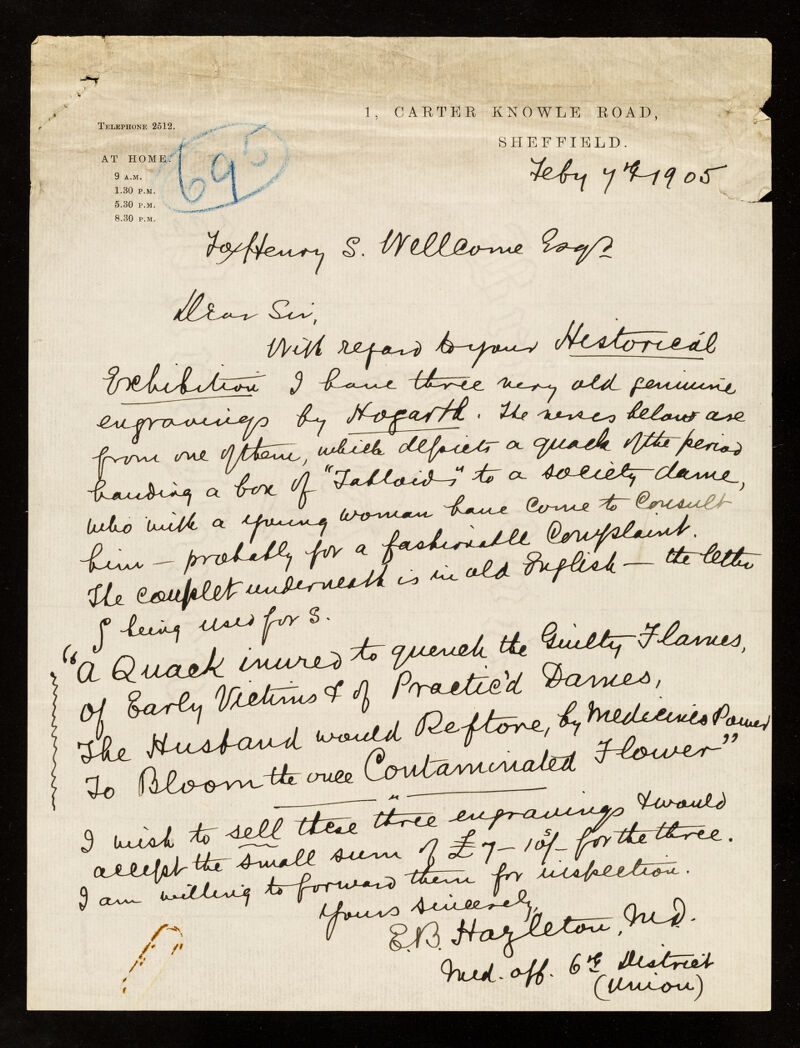 1, CARTER KNOWLE ROAD,
SHEFFIELD.
TELEPHONE 2512.
AT HOME.
9 A.M.
1.30 P.M.
5.30 P.M.
8.30 P.M.
695
Feby 7th 1905
To Henry S. Wellcome Esqr
Dear Sir,
With regard to your Historical
Exhibition I have three very old genuine
engravings by Hogarth. The verses below are
from one of them, which depicts a quack of the period
handing a box of "Tabloids" to a society dame,
who with a young woman have come to consult
him — probably for a fashionable Complaint.
The couplet underneath is in old English — the letter
ʃ being used for S.
"A Quack inured to quench the Guilty Flames,
of Early Victims & of Practic'd Dames,
The Husband would Reftore, by Medicines Power
To Bloom the once Contaminated Flower"
I wish to sell these three engravings & would
accept the small sum of £7–10s/– for the three.
I am willing to forward them for inspection.
Yours sincerely,
E.B. Hazleton, M.D.
Med. off. 6th District
(Union)